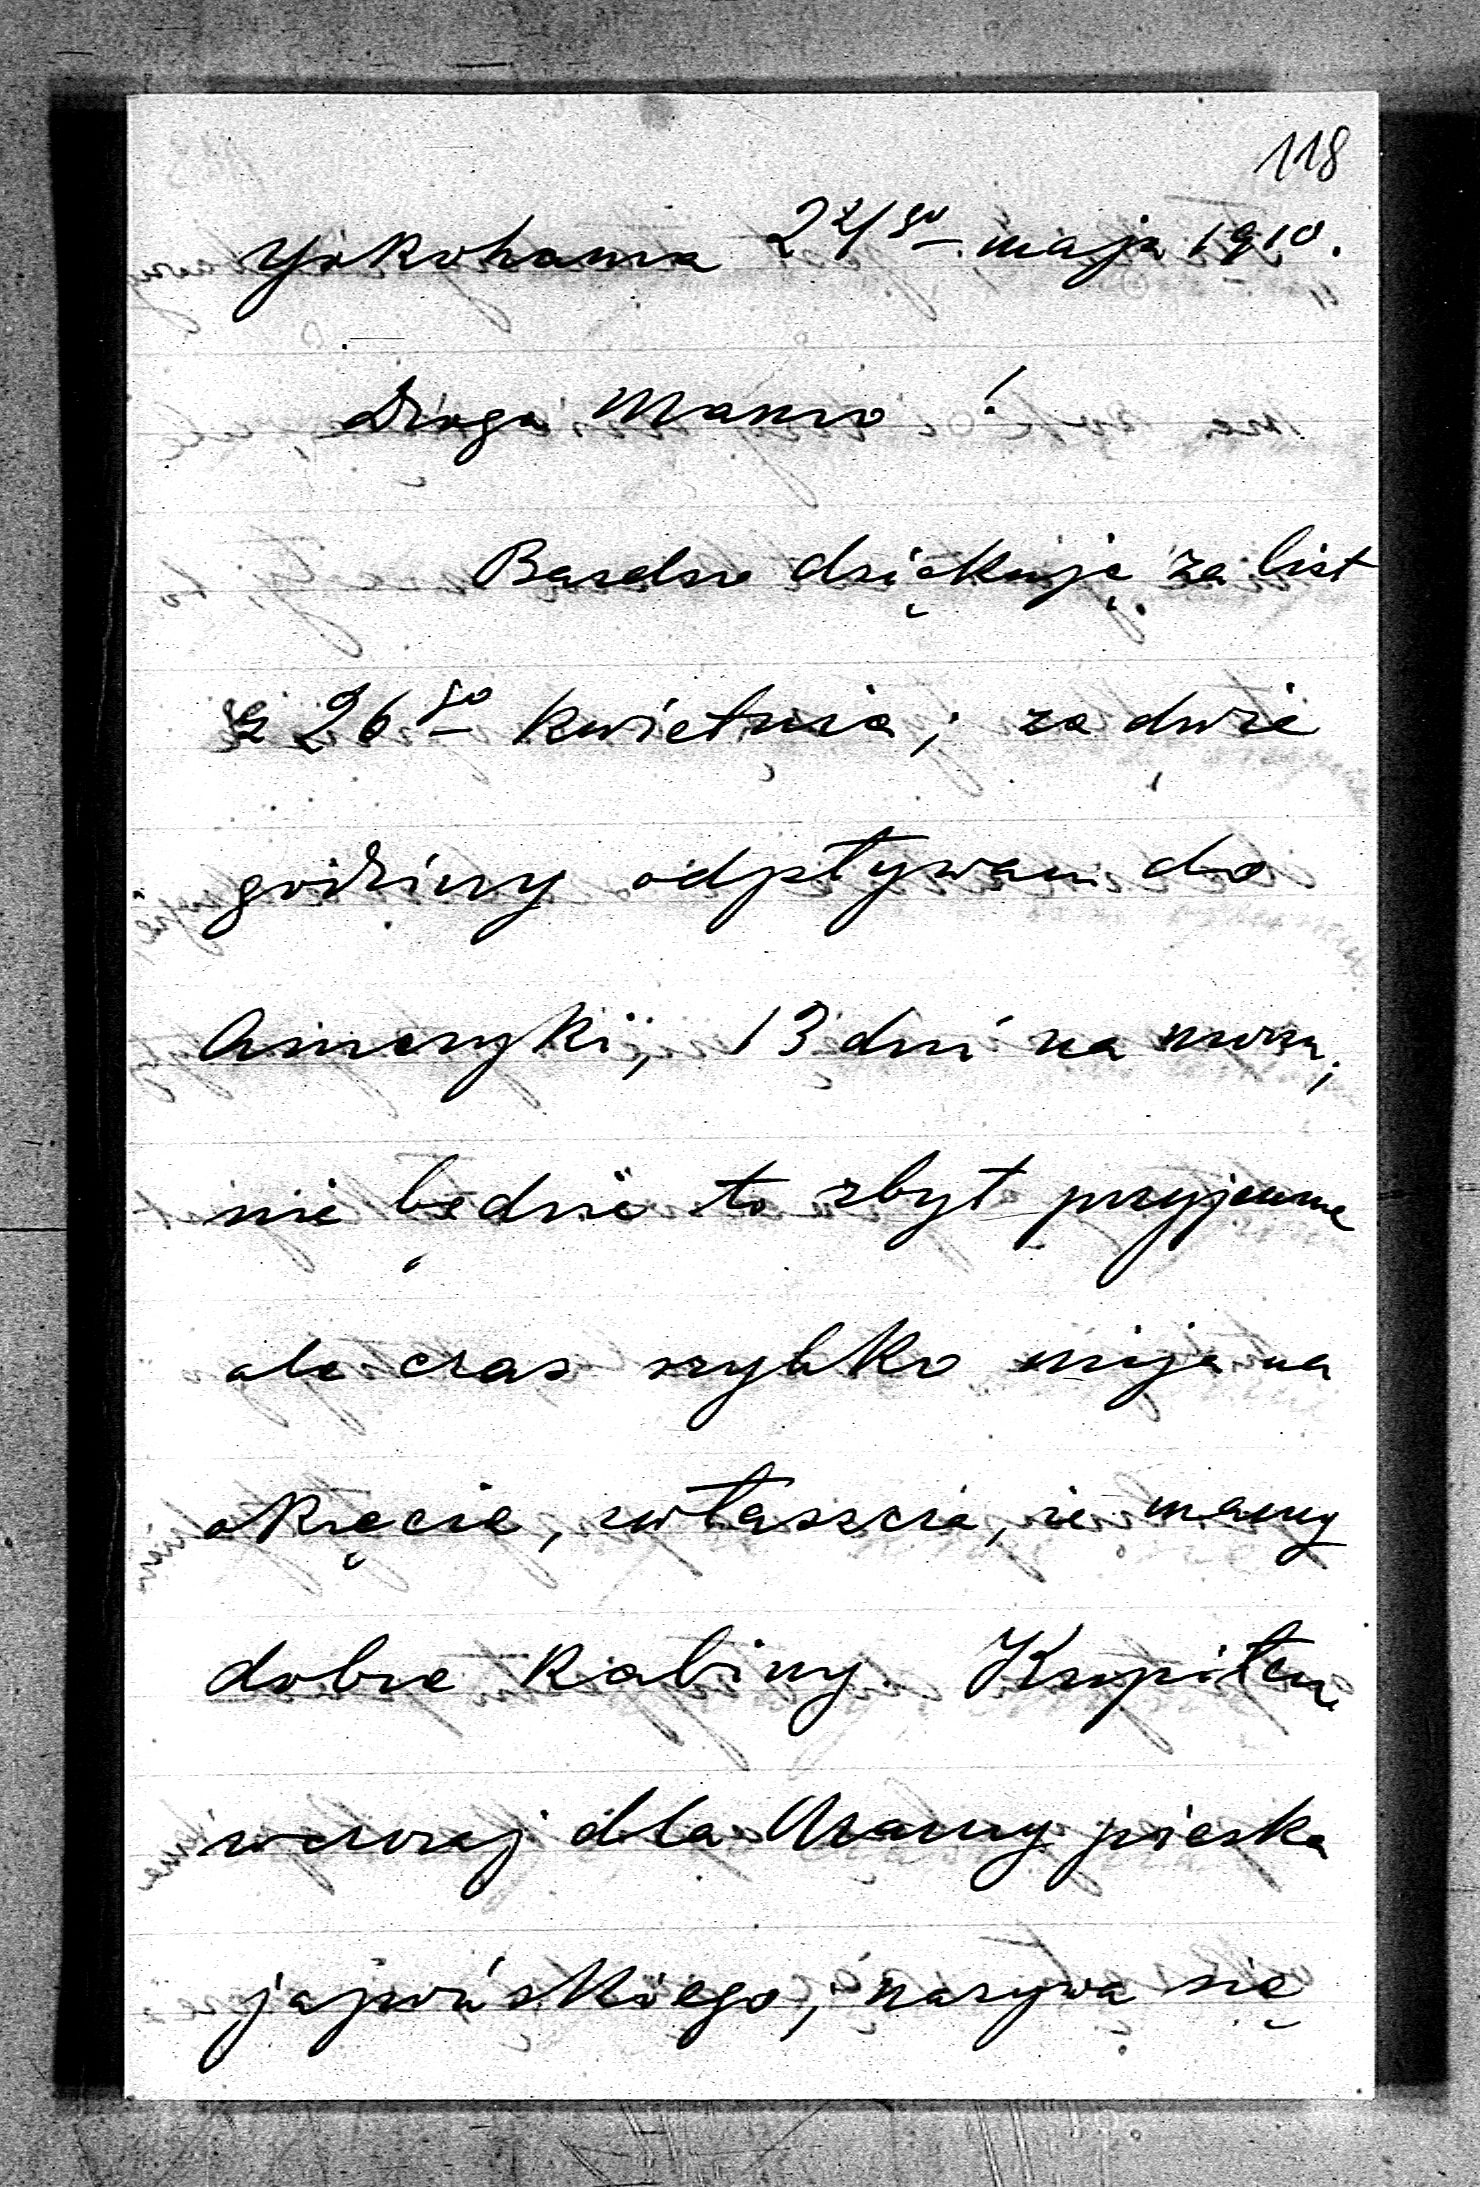 118
Yokohama 24go maja 1910.
Droga Mamo!
Bardzo dziękuję za list
z 26go kwietnia; za dwie
godziny odpływam do
Ameryki, 13 dni na morzu;
nie będzie to zbyt przyjemne
ale czas szybko mija na
okręcie, zwłaszcza, że mamy
dobre kabiny. Kupiłem
wczoraj dla Mamy pieska
japońskiego; nazywa się